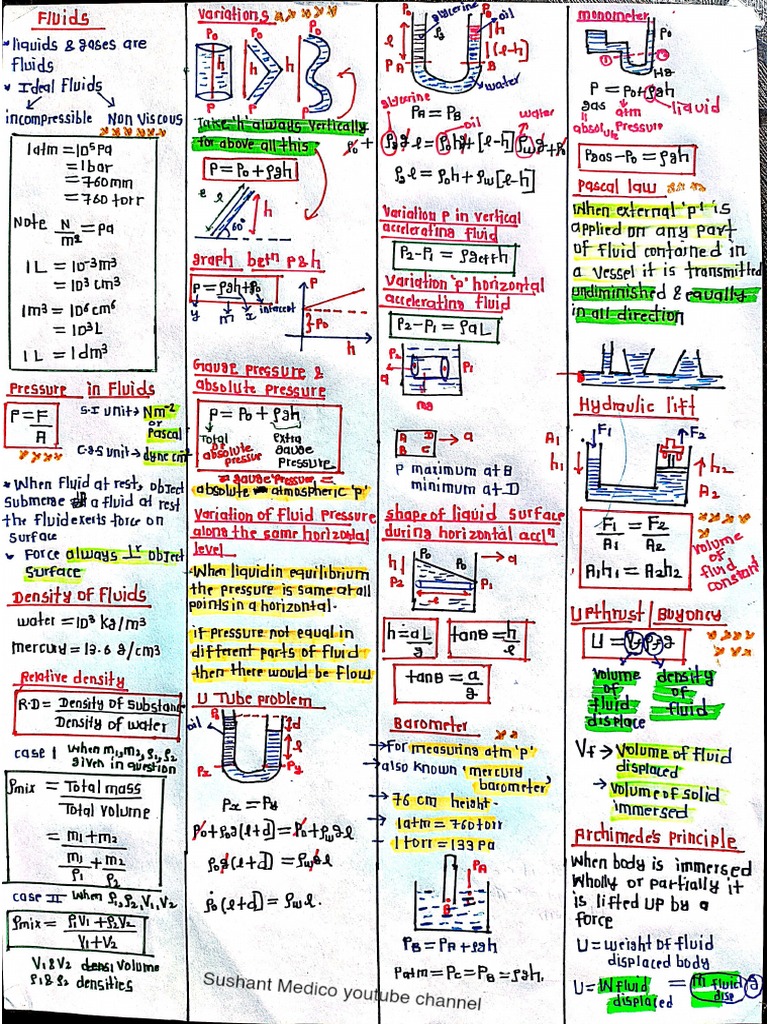 Fluids
• liquids & gases are
Fluids
• Ideal Fluids
incompressible Non Viscous
1atm = 10⁵Pa
= 1bar
= 760mm
= 760torr
Note N/m² = Pa
1L = 10⁻³m³
= 10³cm³
1m³ = 10⁶cm⁶
= 10³L
1L = 1dm³
Pressure in Fluids
P = F/A
S.I unit → Nm⁻²
or
Pascal
C.G.S unit → dyne cm
• When fluid at rest, object
submerse a fluid at rest
the fluid exerts force on
surface
• Force always ⊥r object
surface
Density of Fluids
water = 10³ kg/m³
mercury = 13.6 g/cm³
Relative density
R.D = Density of substanc / Density of water
case I when m₁,m₂,ρ₁,ρ₂
given in question
ρmix = Total mass / Total volume
= m₁+m₂ / m₁/ρ₁ + m₂/ρ₂
case II when ρ₁,ρ₂,V₁,V₂
ρmix = ρ₁V₁+ρ₂V₂ / V₁+V₂
V₁&V₂ densi volume
ρ₁&ρ₂ densities
variations
P₀ P₀ P₀
h h h
P P P
Take 'h' always vertically
for above all this
P = P₀+ρgh
l h
60°
graph betn P&h
P = ρgh+P₀
y m x intercept
P
P₀
h
Gauge pressure &
absolute pressure
P = P₀ + ρgh
Total extra
or gauge
absolute pressure
pressur
• gauge pressure =
absolute - atmospheric 'p'
Variation of Fluid Pressure
along the same horizontal
level
→ When liquid in equilibrium
the pressure is same at all
points in a horizontal.
if pressure not equal in
different parts of fluid
then there would be flow
U Tube problem
P₀ d
oil l
Px Py
Px = Py
P₀+ρ₀g(l+d) = P₀+ρwgl
ρ₀g(l+d) = ρwgl
ρ₀(l+d) = ρwl.
P₀ glycerine P₀ oil
l ρg h
(l-h)
PA A B
water
PA = PB
glycerine oil water
P₀ + ρg g l = ρ₀hg + [l-h] ρwg+P₀
ρgl = ρ₀h + ρw[l-h]
Variation P in vertical
accelerating fluid
P₂-P₁ = ρgeffh
Variation 'p' horizontal
accelerating fluid
P₂-P₁ = ρaL
P₂ P₁
a
ma
A D → a
B C
P maximum at B
minimum at D
shape of liquid surface
during horizontal accln
P₀ P₀ → a
h
P₂ P₁
l
h = aL/g tanθ = h/l
tanθ = a/g
Barometer
→ For measuring atm 'p'
→ also known mercury
barometer
→ 76 cm height.
→ 1atm = 760torr
→ 1torr = 133 Pa
PA
B
PB = PA + ρgh
Patm = Pc = PB = ρgh.
monometer
P₀
Hg
P = P₀+ρgh
gas atm liquid
absolute pressure
Pgas-P₀ = ρgh
Pascal law
When external 'p' is
applied on any part
of fluid contained in
a vessel it is transmitted
undiminished & equally
in all direction
Hydraulic lift
A₁ F₁ F₂
h₁ h₂
A₂
F₁/A₁ = F₂/A₂
A₁h₁ = A₂h₂
volume
of
fluid
constant
Upthrust/Buyoncy
U = Vfρfg
volume density
of of
fluid fluid
displace
Vf → Volume of fluid
displaced
→ volume of solid
immersed
Archimede's principle
When body is immersed
wholly or partially it
is lifted up by a
force
U = weight of fluid
displaced body
U = W fluid displaced = m fluid disp g
Sushant Medico youtube channel